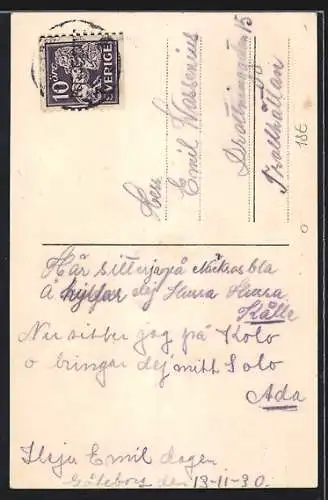 10 öre
SVERIGE
Herr
Emil Wassenius
Drottninggatan 15
Trollhättan
18E
Här sitter jag på Näckrosbla
å hyllar dej Hurra Hurra
Kålle
Nu sitter jag på Kolo
o bringar dej mitt Solo
Ada
Emil dagen
Göteborg den 13-11-30.